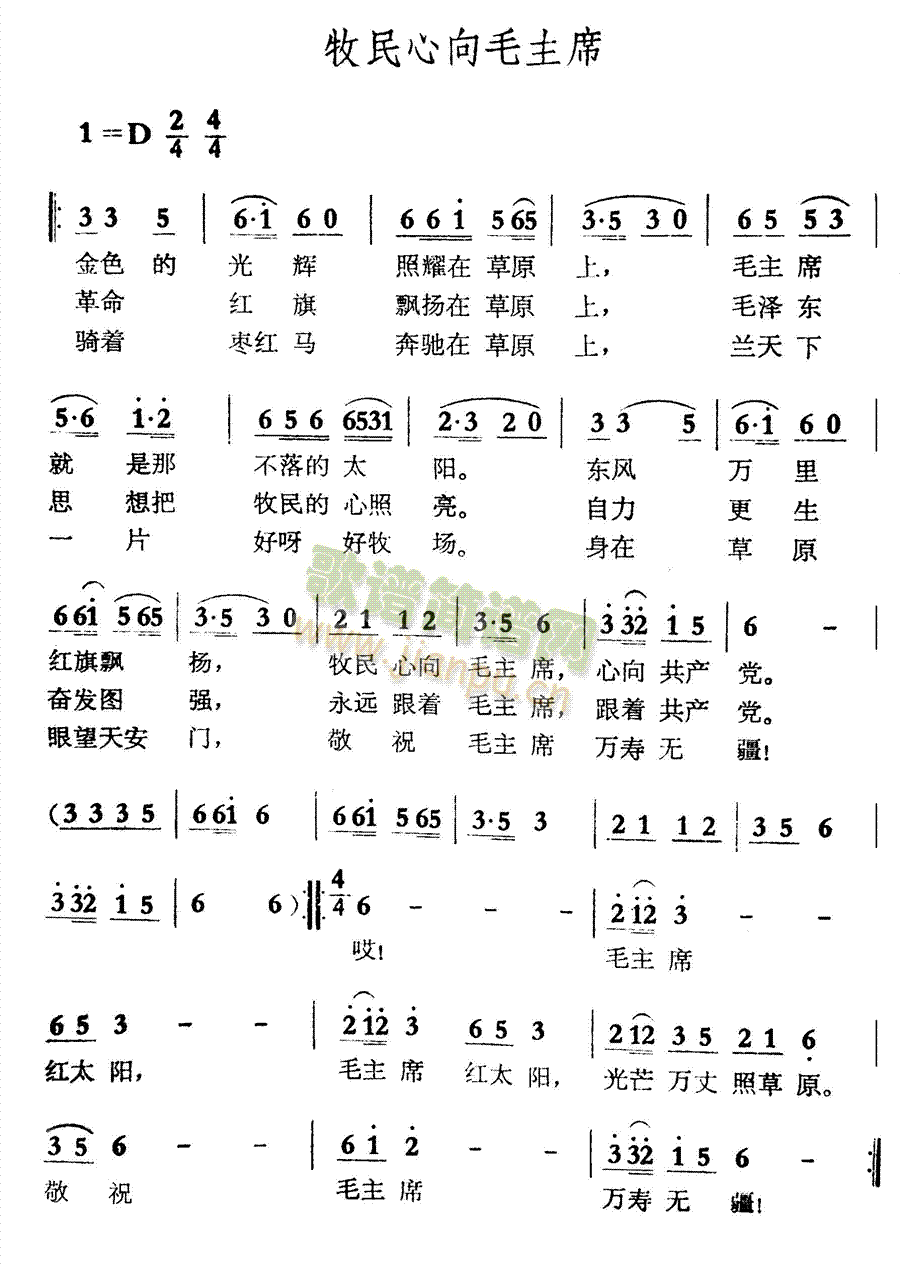 牧民心向毛主席
1=D 2/4 4/4
3 3 5 | 6·i 6 0 | 6 6 i 5 6 5 | 3·5 3 0 | 6 5 5 3 |
金色的 光辉 照耀在草原 上， 毛主席
革命 红旗 飘扬在草原 上， 毛泽东
骑着 枣红马 奔驰在草原 上， 兰天下
5·6 i·2 | 6 5 6 6531 | 2·3 2 0 | 3 3 5 | 6·i 6 0 |
就是那 不落的太 阳。 东风 万里
思想把 牧民的心照 亮。 自力 更生
一片 好呀好牧 场。 身在 草原
6 6i 5 65 | 3·5 3 0 | 2 1 1 2 | 3·5 6 | 3 32 i 5 | 6 -
红旗飘 扬， 牧民心向 毛主席， 心向共产 党。
奋发图 强， 永远跟着 毛主席， 跟着共产 党。
眼望天安 门， 敬祝 毛主席 万寿无 疆！
(3 3 3 5 | 6 6i 6 | 6 6i 5 65 | 3·5 3 | 2 1 1 2 | 3 5 6 |
3 32 i 5 | 6 6 ) :||: 4/4 6 - - - | 2 i2 3 - - |
哎！ 毛主席
6 5 3 - - | 2 i2 3 6 5 3 | 2 12 3 5 2 1 6 |
红太阳， 毛主席 红太阳， 光芒万丈照草原。
3 5 6 - - | 6 i 2 - - | 3 32 i 5 6 - :||
敬祝 毛主席 万寿无疆！
歌谱简谱网
www.jianpu.cn